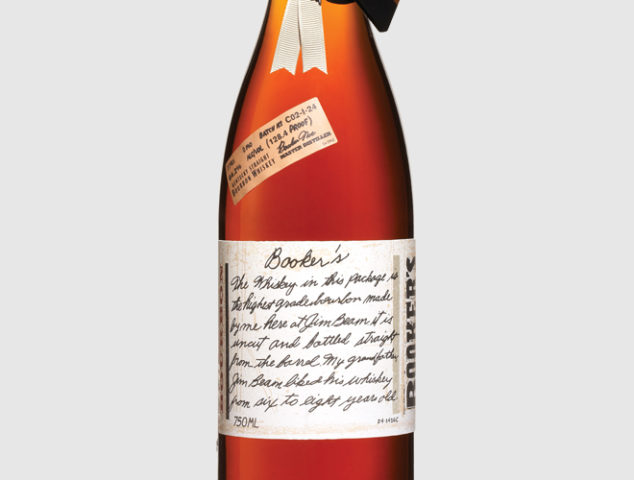 BATCH Nº C02-1-24
(128.4 PROOF)
KENTUCKY STRAIGHT
BOURBON WHISKEY
Booker Noe
MASTER DISTILLER
Booker's
The Whiskey in this package is
the highest grade bourbon made
by me here at Jim Beam it is
uncut and bottled straight
from the barrel. My grandfather,
Jim Beam liked his whiskey
from six to eight years old
750 ML
BOOKER'S